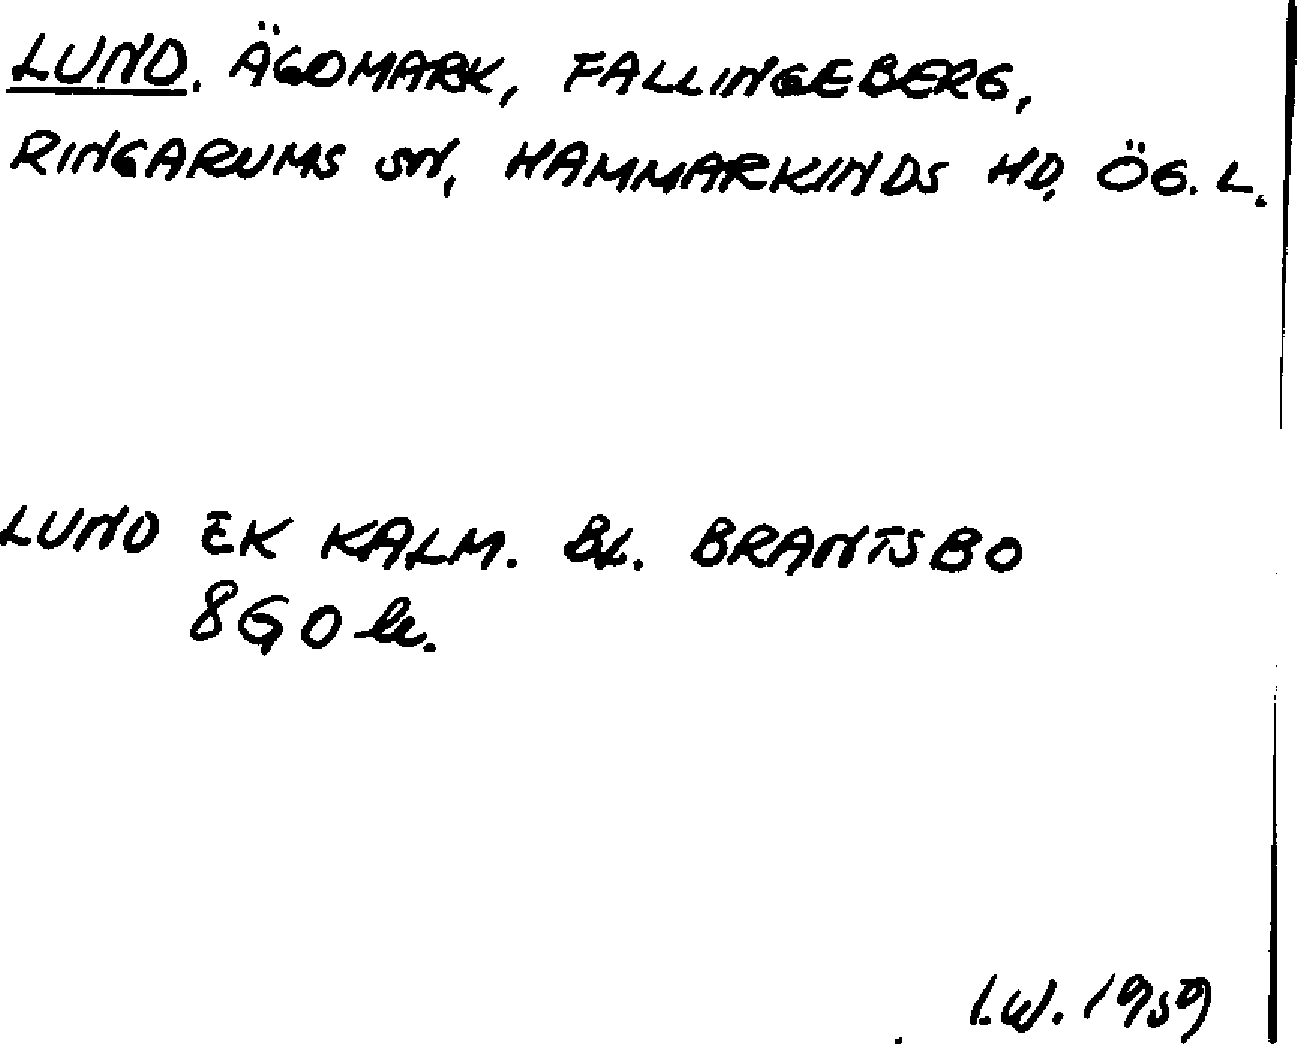 LUND. ÄGOMARK, FALLINGEBERG,
RINGARUMS SN, HAMMARKINDS HD, ÖG. L.
LUND EK KALM. BL. BRANTSBO
8G0
I.W. 1959